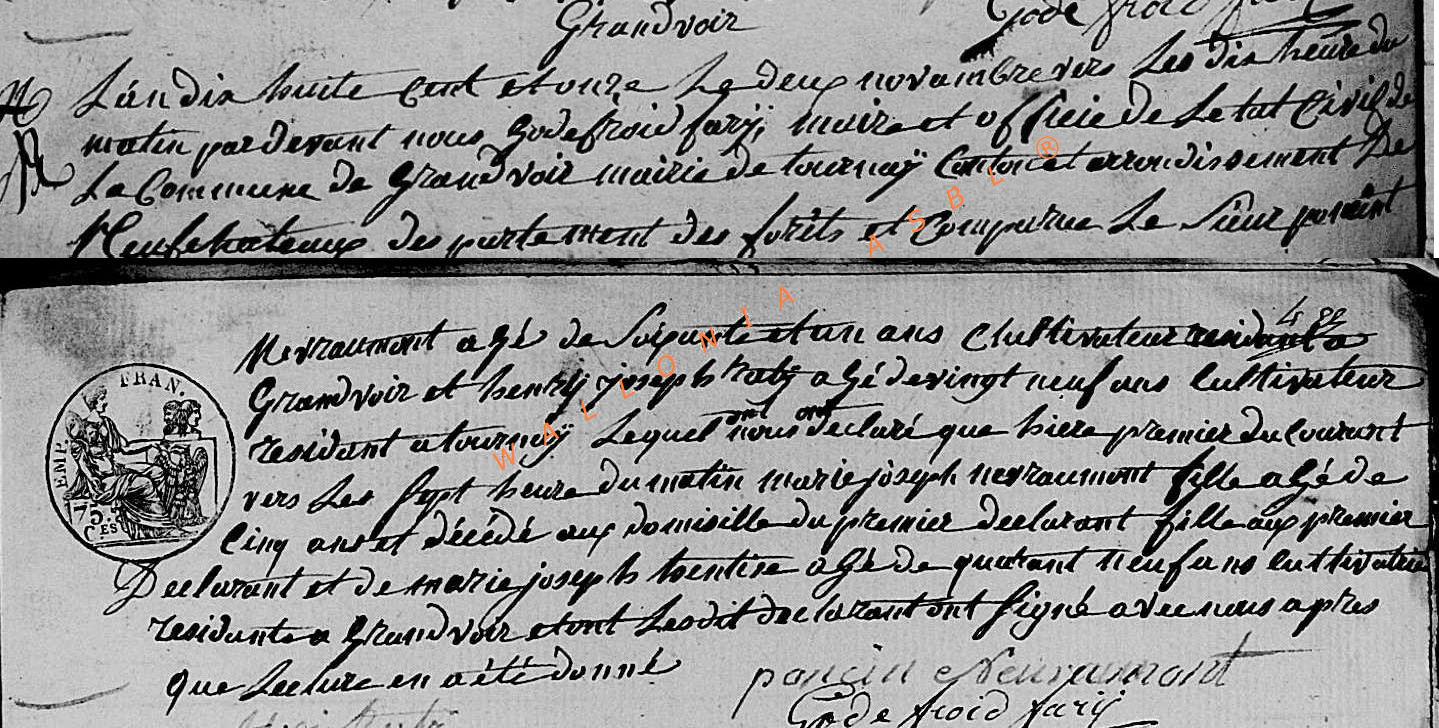 Grandvoir
Gode froid
L'an dix huite cent et onze Le deux novambre vers Les dix heure du
matin pardevant nous Godefroid farÿ maire et officie de Letat Civil de
La Commune de Grandvoir mairie de tournaÿ Canton et arrondissement De
Neufchateaux des partement des forêts et Comparue Le Sieur
Nevraumont agé de Soixante et un ans Chultivateur residant a
Grandvoir et henrÿ joseph agé de vingt neuf ans Cultivateur
residant a tournaÿ Lequel nous ont declaré que hiere premier du Courant
vers Les Sept heure du matin marie joseph nevraumont fille agé de
Cinq ans et décédé aux domisille du premier declarant fille aux premier
Declarant et de marie joseph agé de quarant neuf ans cultivatrice
residante a Grandvoir et ont Lesdit declarant ont Signé avec nous apres
que Lecture en a été donné
poncin Nevraumont
Gode froid farÿ
FRAN
EMP.
75
CES
WALLONIA ASBL ®